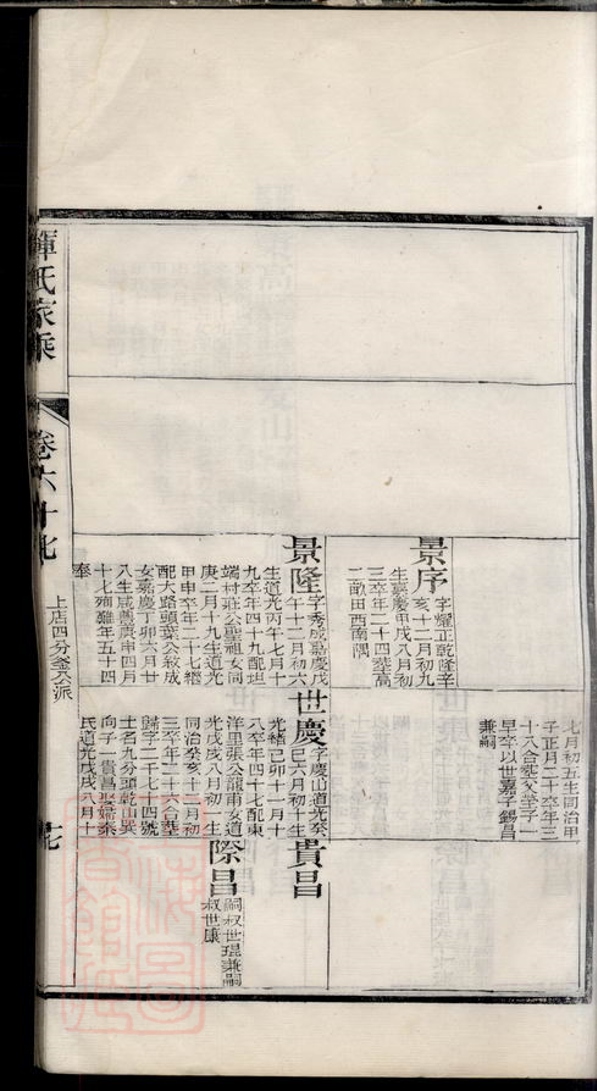 七月初五生同治甲
子正月二十卒年三
十八合葬父塋子一
早卒以世嘉子錫昌
兼嗣
景序
字耀正乾隆辛
亥十二月初九
生嘉慶甲戌八月初
三卒年二十四葬高
二畝田西南隅
景隆
字秀成嘉慶戊
午十二月初六
生道光丙午七月十
九卒年四十九配坦
端村莊公聖祖女同
庚二月十九生道光
甲申卒年二十七繼
配大路頭葉公敘成
女嘉慶丁卯六月廿
八生咸豐庚申四月
十七殉難年五十四
奉
世慶
字慶山道光癸
巳六月初十生
光緒己卯十一月十
八卒年四十七配東
洋里張公龍甫女道
光戊戌八月初一生
同治癸亥十二月初
三卒年二十六合葬
歸字二千七十四號
土名九分頭乾山巽
向子一貴昌娶婦秦
氏道光戊戌八月十
貴昌
際昌
嗣叔世琨兼嗣
叔世康
氏家乘
卷六十九
上店四分
公派